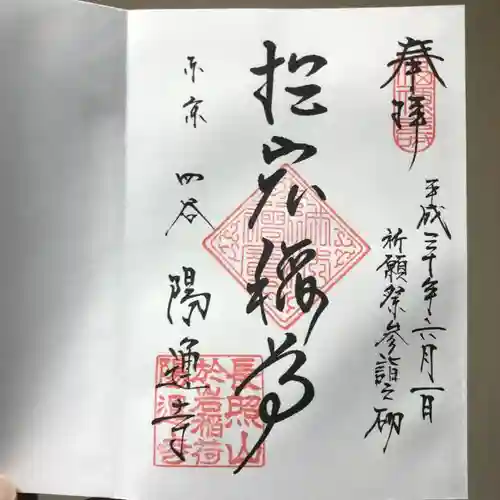 奉拝
平成三十年六月一日
祈願祭参詣之砌
於岩稲荷
東京 四谷 陽運寺
長照山
於岩稲荷
陽運寺